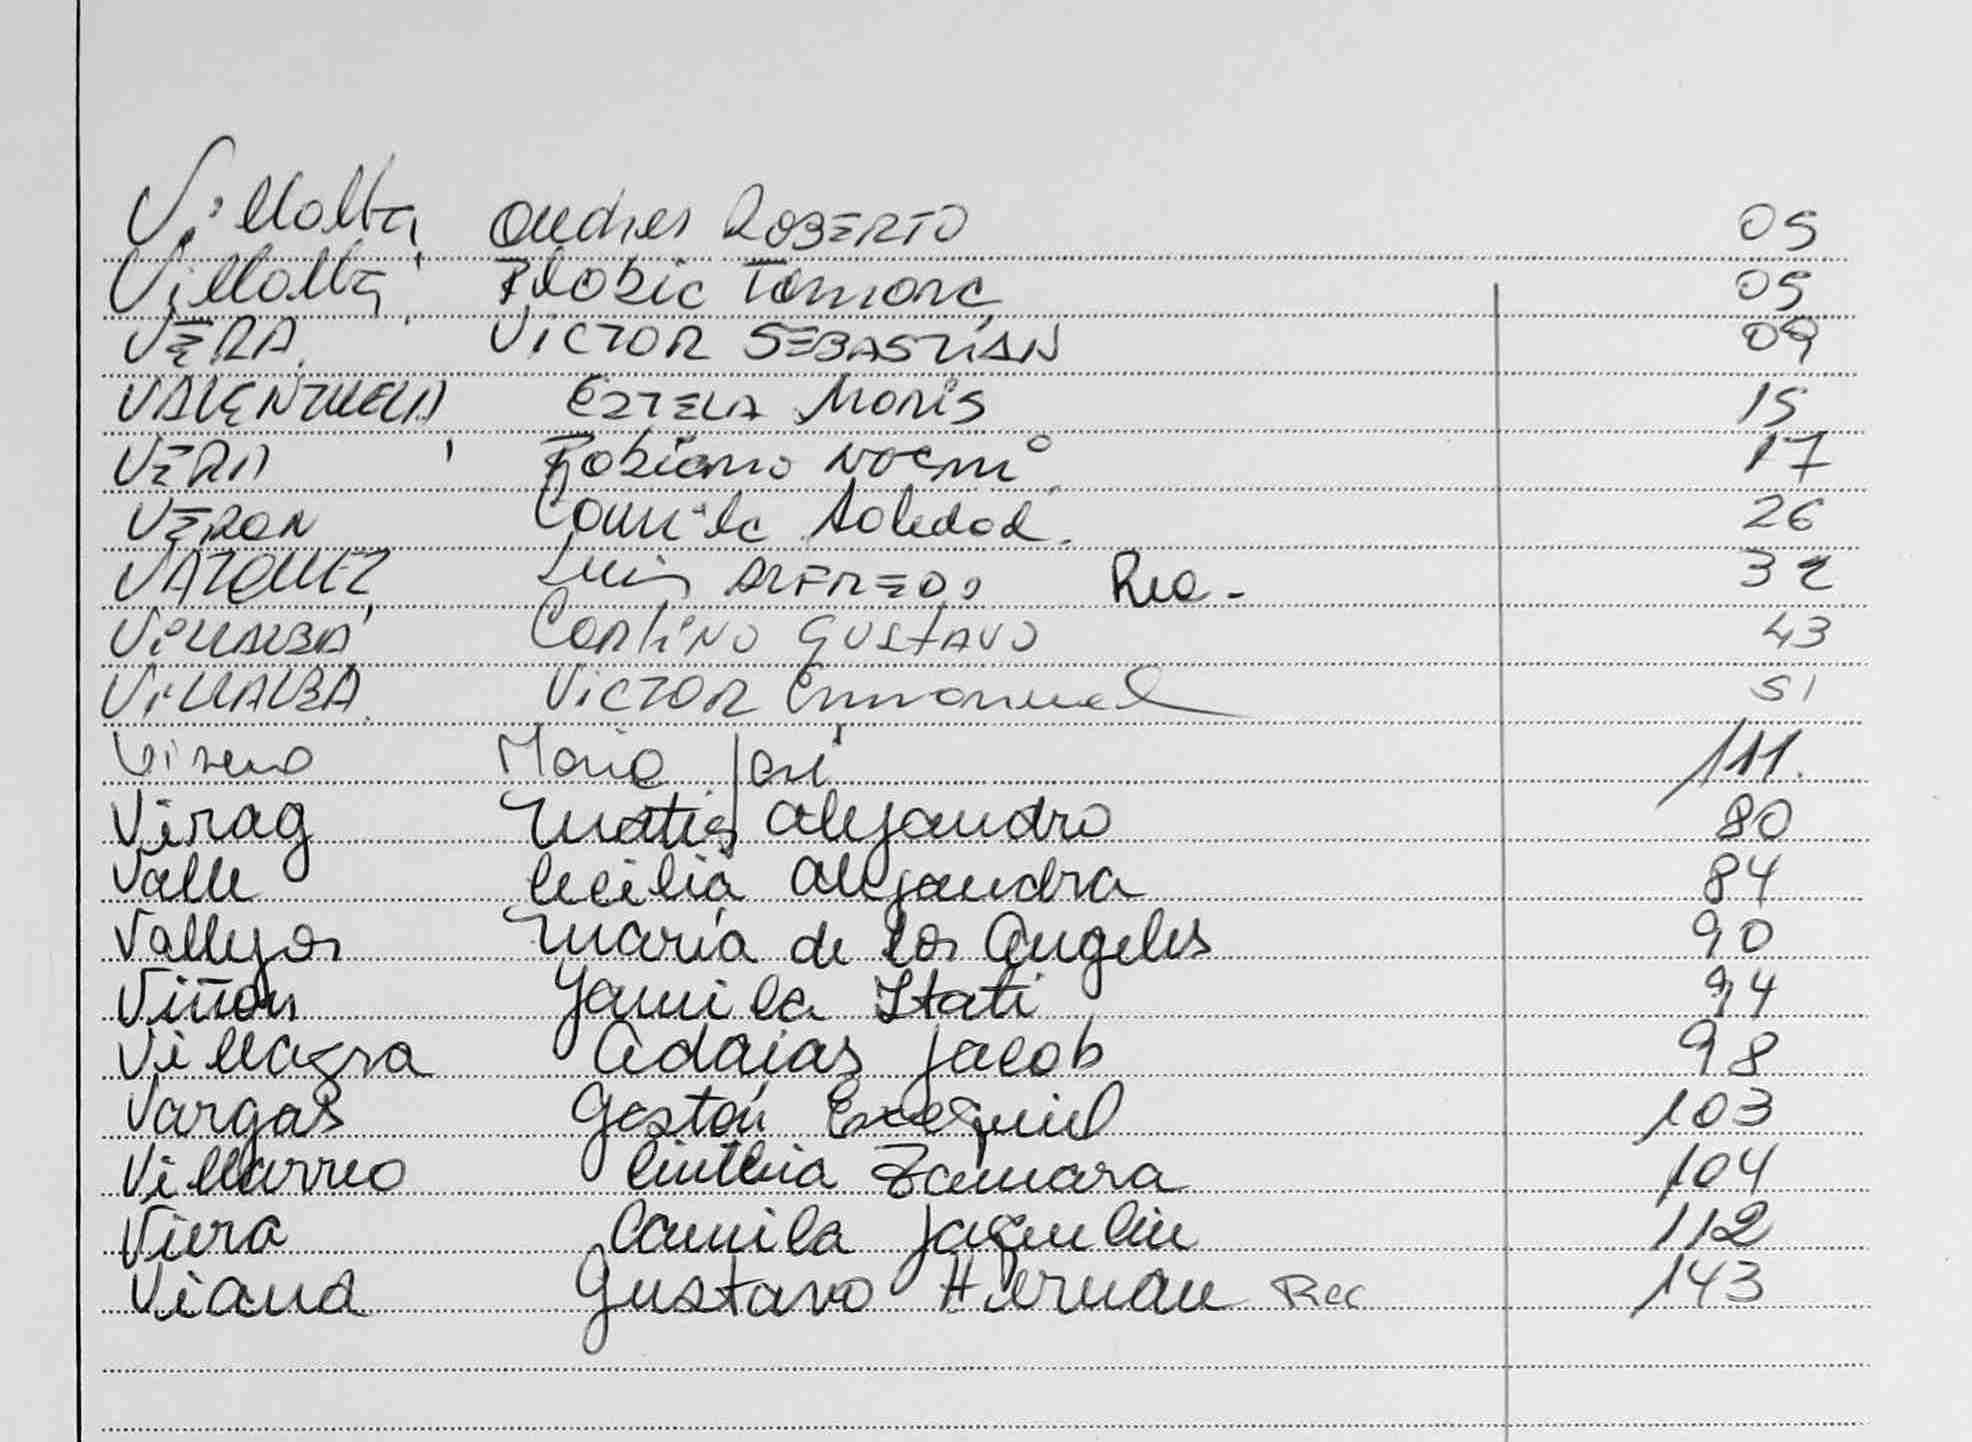 Villalba, Andres ROBERTO 05
Villalba, Tamara 05
VERA, VICTOR SEBASTIÁN 09
VALENZUELA, ESTELA Maris 15
VERA, Fabiana Noemí 17
VERON Camila Soledad. 26
VAZQUEZ, Luis ALFREDO Rec - 32
ViLLALBA, Catalino GUSTAVO 43
ViLLALBA. VICTOR Emmanuel 51
María José 111.
Virag Matías Alejandro 80
Valle Cecilia Alejandra 84
Vallejos María de los Angeles 90
Viñon Yamila Itatí 94
Villagra Adaias Jacob 98
Vargas Gastón Exequiel 103
Villarreo Cinthia Tamara 104
Viera Camila Jaquelin 112
Viand Gustavo Hernán Rec 143